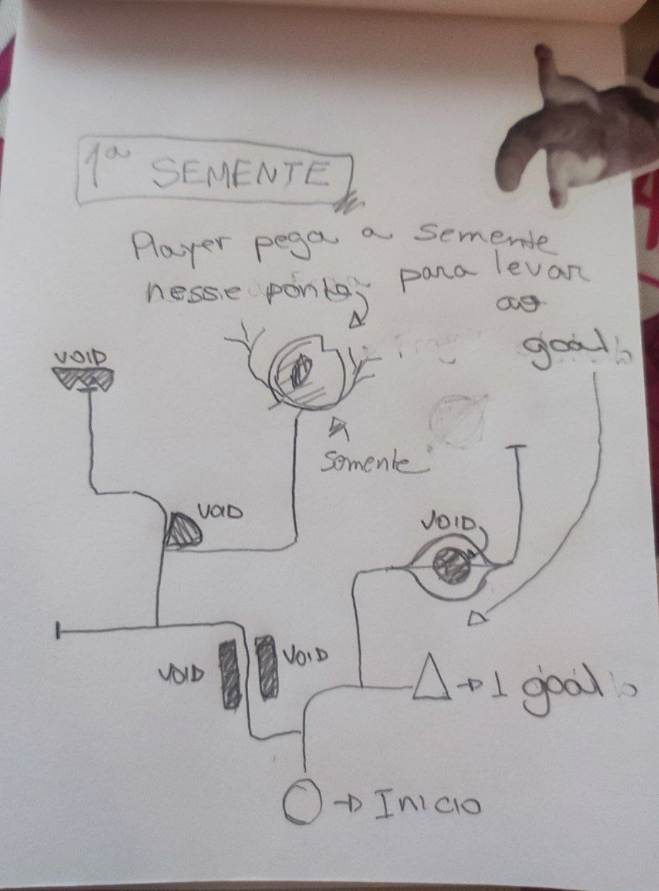 1ª SEMENTE
Player pega a semente
nesse ponto, para levar
ao
goal
VOID
Semente
VOID
VOID
VOID
VOID
→ 1 goal
→ Inicio